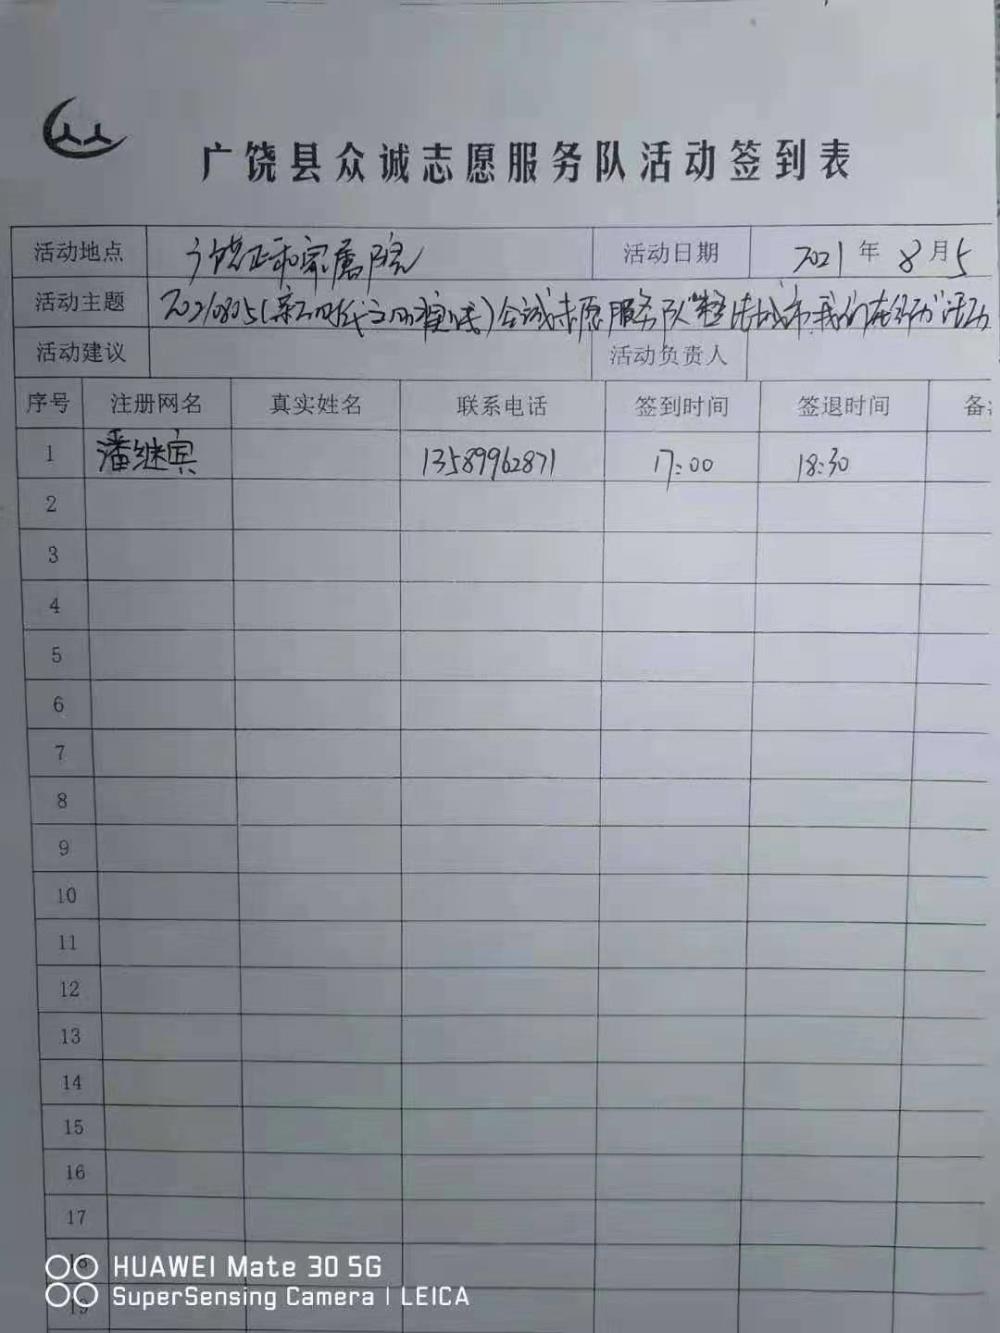 广饶县众诚志愿服务队活动签到表
活动地点 广饶正和家属院 活动日期 2021 年 8 月 5
活动主题 20210805(新时代文明实践)众诚志愿服务队"整洁城市,我们在行动"活动
活动建议 活动负责人
序号 注册网名 真实姓名 联系电话 签到时间 签退时间 备
1 潘继宾 13589962871 17:00 18:30
2
3
4
5
6
7
8
9
10
11
12
13
14
15
16
17
18
19
HUAWEI Mate 30 5G
SuperSensing Camera | LEICA